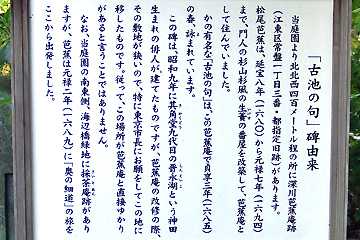 「古池の句」碑由来
当庭園より北北西四百メートル程の所に深川芭蕉庵跡
(江東区常盤一丁目三番・都指定旧跡)があります。
松尾芭蕉は、延宝八年(一六八〇)から元禄七年(一六九四)
まで、門人の杉山杉風の生簀の番屋を改築して、芭蕉庵と
して住んでいました。
かの有名な「古池の句」は、この芭蕉庵で貞享三年(一六八六)
の春、詠まれています。
この碑は、昭和九年に其角堂九代目の晋永湖という神田
生まれの俳人が建てたものですが、芭蕉庵の改修の際、
その敷地が狭いので、特に東京市長にお願をしてこの地に
移したものです。従って、この場所が芭蕉庵と直接ゆかり
があると言うことではありません。
なお、当庭園の南東側、海辺橋緑地に採荼庵跡があり
ますが、芭蕉は元禄二年(一六八九)に「奥の細道」の旅を
ここから出発しました。